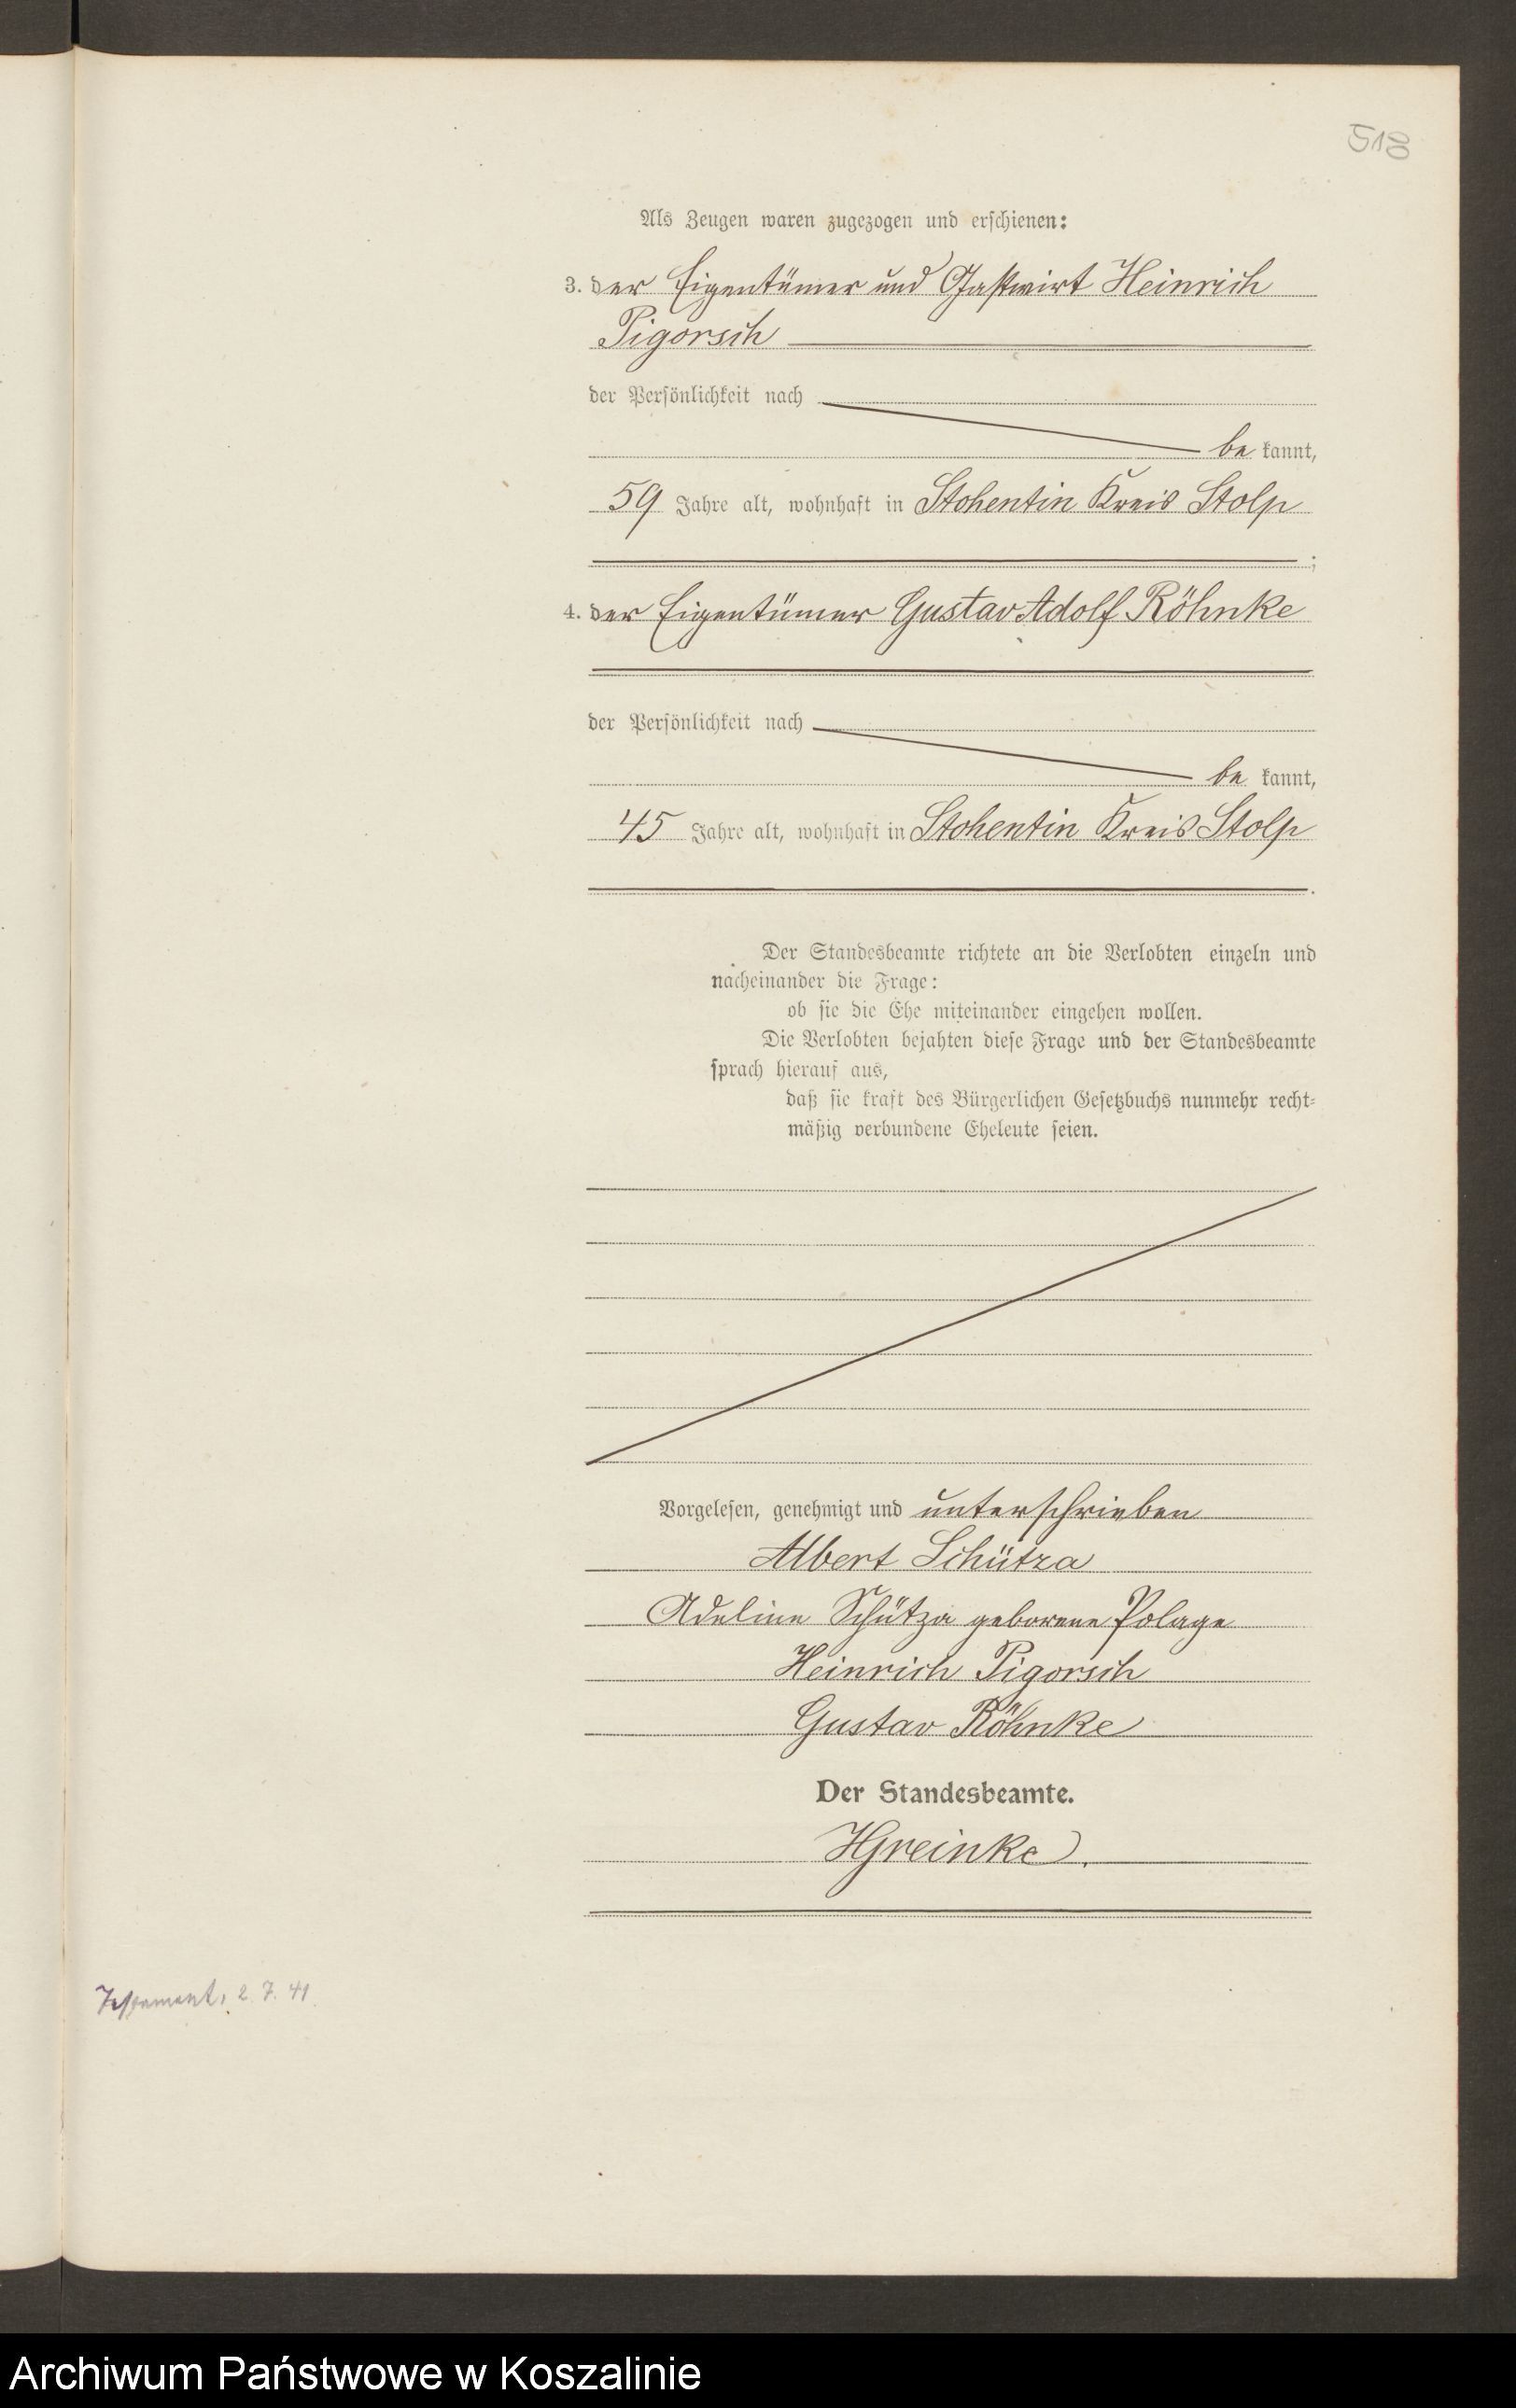 518
Als Zeugen waren zugezogen und erschienen:
3. der Eigentümer und Gastwirt Heinrich
Pigorsch
der Persönlichkeit nach
be kannt,
59 Jahre alt, wohnhaft in Stohentin Kreis Stolp
;
4. der Eigentümer Gustav Adolf Röhnke
der Persönlichkeit nach
be kannt,
45 Jahre alt, wohnhaft in Stohentin Kreis Stolp
.
Der Standesbeamte richtete an die Verlobten einzeln und
nacheinander die Frage:
ob sie die Ehe miteinander eingehen wollen.
Die Verlobten bejahten diese Frage und der Standesbeamte
sprach hierauf aus,
daß sie kraft des Bürgerlichen Gesetzbuchs nunmehr recht-
mäßig verbundene Eheleute seien.
Vorgelesen, genehmigt und unterschrieben
Albert Schütza
Adeline Schütza geborene Polage
Heinrich Pigorsch
Gustav Röhnke
Der Standesbeamte.
HGreinke.
Testament, 2. 7. 41.
Archiwum Państwowe w Koszalinie